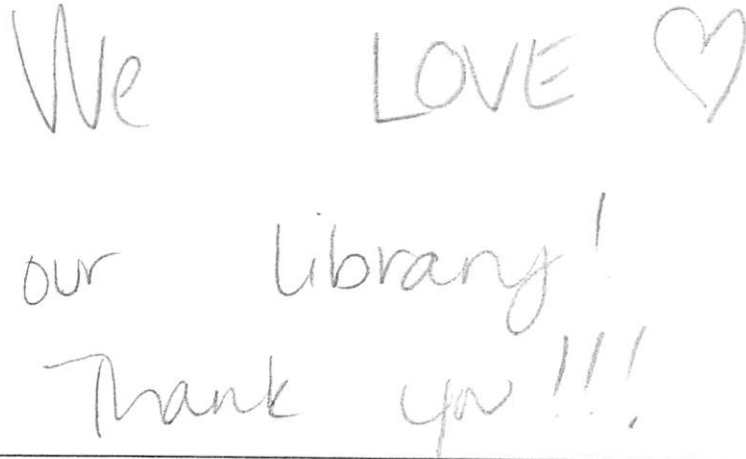 We LOVE ♡
our library!
Thank you!!!